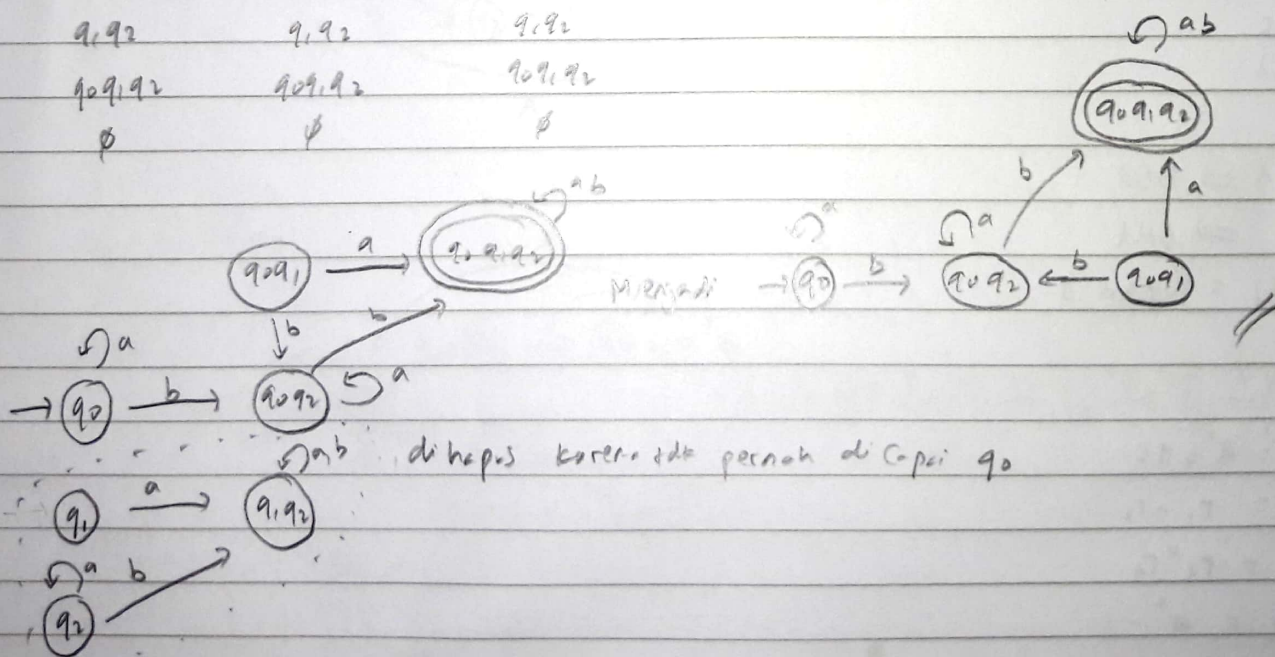 q1q2 q1q2 q1q2
q0q1q2 q0q1q2 q0q1q2
ϕ ϕ ϕ
ab
q0q1q2
ab
b
a
q0q1
a
q0q1q2
Menjadi
a
q0
b
a
q0q2
b
q0q1
b
b
a
q0
b
q0q2
a
ab
dihapus karena tdk pernah di capai q0
q1
a
q1q2
a
b
q2